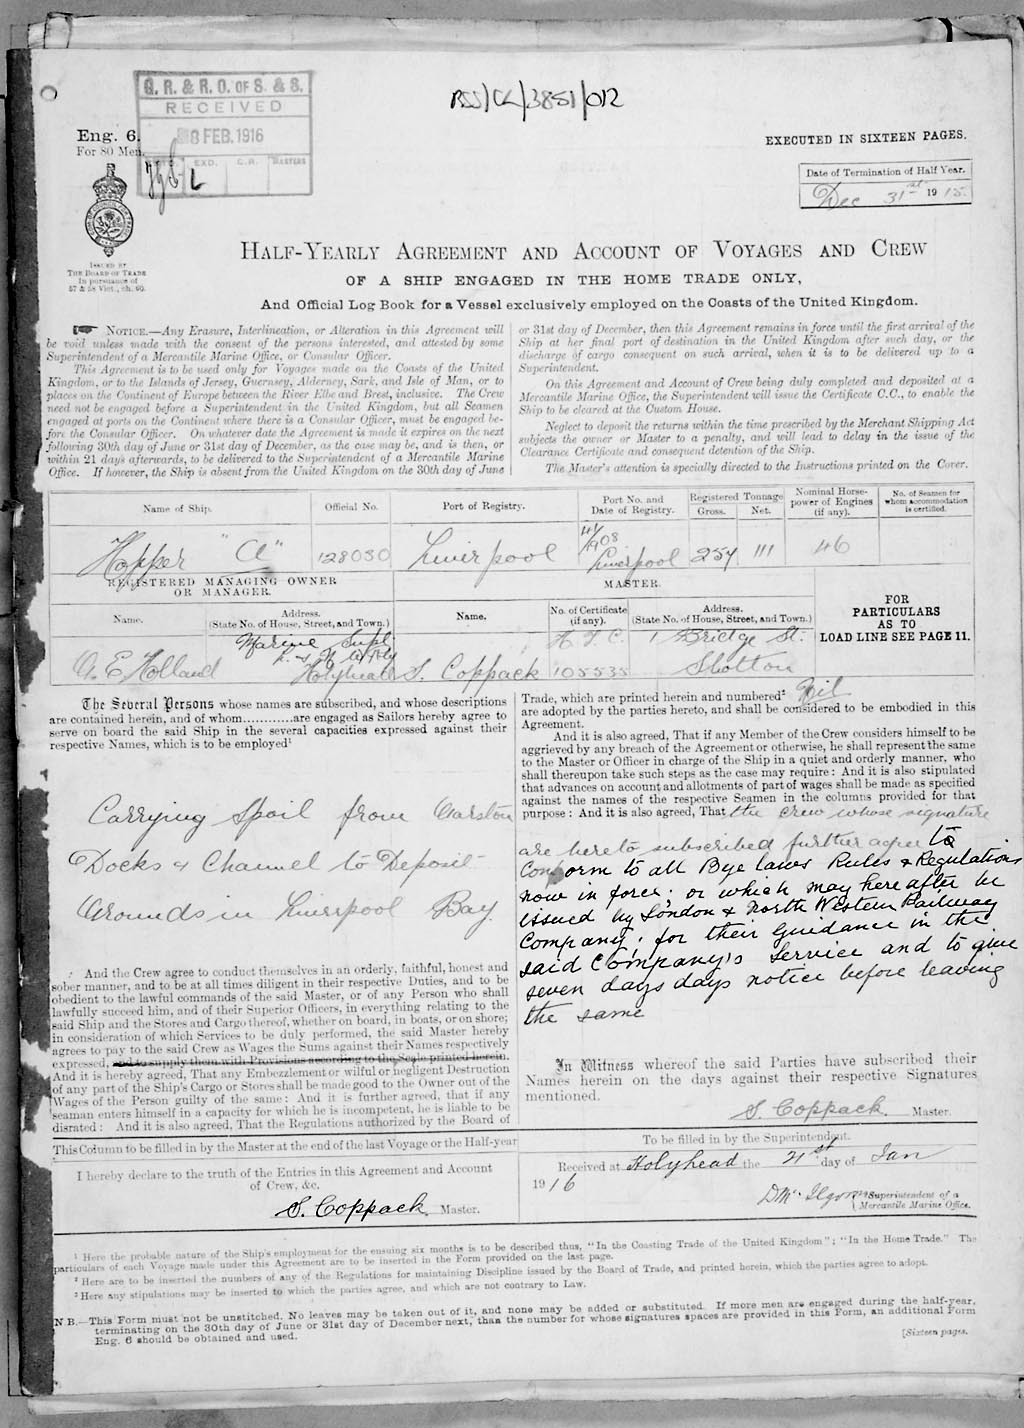 RSS/CL/3851/012
G. R. & R. O. OF S. & S.
RECEIVED
8 FEB. 1916
EXD.
C.R.
MASTERS
L
Eng. 6.
For 80 Men.
EXECUTED IN SIXTEEN PAGES.
Date of Termination of Half Year.
Dec 31st 1915.
ISSUED BY
THE BOARD OF TRADE
In pursuance of
57 & 58 Vict., ch. 60.
HALF-YEARLY AGREEMENT AND ACCOUNT OF VOYAGES AND CREW
OF A SHIP ENGAGED IN THE HOME TRADE ONLY,
And Official Log Book for a Vessel exclusively employed on the Coasts of the United Kingdom.
NOTICE.—Any Erasure, Interlineation, or Alteration in this Agreement will
be void unless made with the consent of the persons interested, and attested by some
Superintendent of a Mercantile Marine Office, or Consular Officer.
This Agreement is to be used only for Voyages made on the Coasts of the United
Kingdom, or to the Islands of Jersey, Guernsey, Alderney, Sark, and Isle of Man, or to
places on the Continent of Europe between the River Elbe and Brest, inclusive. The Crew
need not be engaged before a Superintendent in the United Kingdom, but all Seamen
engaged at ports on the Continent where there is a Consular Officer, must be engaged be-
fore the Consular Officer. On whatever date the Agreement is made it expires on the next
following 30th day of June or 31st day of December, as the case may be, and is then, or
within 21 days afterwards, to be delivered to the Superintendent of a Mercantile Marine
Office. If however, the Ship is absent from the United Kingdom on the 30th day of June
or 31st day of December, then this Agreement remains in force until the first arrival of the
Ship at her final port of destination in the United Kingdom after such day, or the
discharge of cargo consequent on such arrival, when it is to be delivered up to a
Superintendent.
On this Agreement and Account of Crew being duly completed and deposited at a
Mercantile Marine Office, the Superintendent will issue the Certificate C.C., to enable the
Ship to be cleared at the Custom House.
Neglect to deposit the returns within the time prescribed by the Merchant Shipping Act
subjects the owner or Master to a penalty, and will lead to delay in the issue of the
Clearance Certificate and consequent detention of the Ship.
The Master's attention is specially directed to the Instructions printed on the Cover.
Name of Ship. Official No. Port of Registry. Port No. and Date of Registry. Registered Tonnage Gross. Net. Nominal Horse-power of Engines (if any). No. of Seamen for whom accommodation is certified.
Hopper "A" 128030 Liverpool 4/1908 Liverpool 254 111 46
REGISTERED MANAGING OWNER
OR MANAGER.
MASTER.
Name. Address. (State No. of House, Street, and Town.) Name. No. of Certificate (if any). Address. (State No. of House, Street, and Town.)
FOR
PARTICULARS
AS TO
LOAD LINE SEE PAGE 11.
Marine Supt.
A. E Holland Holyhead S. Coppack H.T.C. 105535 1 Bridge St. Shotton
The Several Persons whose names are subscribed, and whose descriptions
are contained herein, and of whom............are engaged as Sailors hereby agree to
serve on board the said Ship in the several capacities expressed against their
respective Names, which is to be employed¹
Carrying Spoil from Garston
Docks & Channel to Deposit
Grounds in Liverpool Bay.
And the Crew agree to conduct themselves in an orderly, faithful, honest and
sober manner, and to be at all times diligent in their respective Duties, and to be
obedient to the lawful commands of the said Master, or of any Person who shall
lawfully succeed him, and of their Superior Officers, in everything relating to the
said Ship and the Stores and Cargo thereof, whether on board, in boats, or on shore;
in consideration of which Services to be duly performed, the said Master hereby
agrees to pay to the said Crew as Wages the Sums against their Names respectively
expressed, and to supply them with Provisions according to the Scale printed herein.
And it is hereby agreed, That any Embezzlement or wilful or negligent Destruction
of any part of the Ship's Cargo or Stores shall be made good to the Owner out of the
Wages of the Person guilty of the same: And it is further agreed, that if any
seaman enters himself in a capacity for which he is incompetent, he is liable to be
disrated: And it is also agreed, That the Regulations authorized by the Board of
Trade, which are printed herein and numbered² Nil
are adopted by the parties hereto, and shall be considered to be embodied in this
Agreement.
And it is also agreed, That if any Member of the Crew considers himself to be
aggrieved by any breach of the Agreement or otherwise, he shall represent the same
to the Master or Officer in charge of the Ship in a quiet and orderly manner, who
shall thereupon take such steps as the case may require: And it is also stipulated
that advances on account and allotments of part of wages shall be made as specified
against the names of the respective Seamen in the columns provided for that
purpose: And it is also agreed, That the crew whose signature
are hereto subscribed further agree to
Conform to all Bye laws Rules & Regulations
now in force; or which may hereafter be
issued by London & North Western Railway
Company; for their Guidance in the
said Company's Service and to give
seven days days notice before leaving
the same
In Witness whereof the said Parties have subscribed their
Names herein on the days against their respective Signatures
mentioned.
S. Coppack. Master.
This Column to be filled in by the Master at the end of the last Voyage or the Half-year
I hereby declare to the truth of the Entries in this Agreement and Account
of Crew, &c.
S. Coppack. Master.
To be filled in by the Superintendent.
Received at Holyhead the 21st day of Jan
1916
Superintendent of a
Mercantile Marine Office.
¹ Here the probable nature of the Ship's employment for the ensuing six months is to be described thus, "In the Coasting Trade of the United Kingdom"; "In the Home Trade." The
particulars of each Voyage made under this Agreement are to be inserted in the Form provided on the last page.
² Here are to be inserted the numbers of any of the Regulations for maintaining Discipline issued by the Board of Trade, and printed herein, which the parties agree to adopt.
³ Here any stipulations may be inserted to which the parties agree, and which are not contrary to Law.
N.B.—This Form must not be unstitched. No leaves may be taken out of it, and none may be added or substituted. If more men are engaged during the half-year,
terminating on the 30th day of June or 31st day of December next, than the number for whose signatures spaces are provided in this Form, an additional Form
Eng. 6 should be obtained and used.
[Sixteen pages.